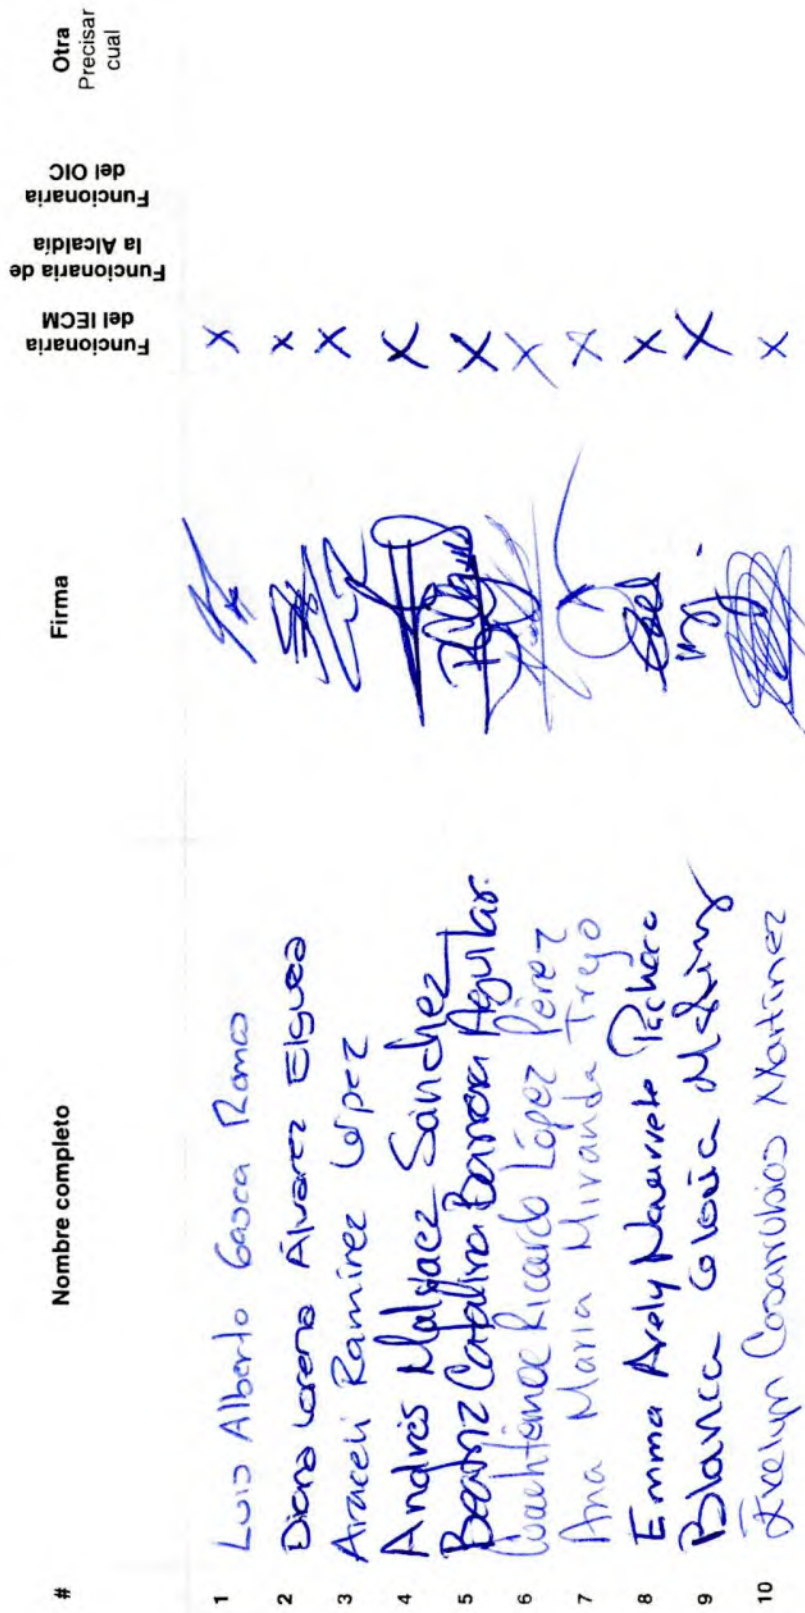 # Nombre completo Firma Funcionaria del IECM Funcionaria de la Alcaldía Funcionaria del OIC Otra Precisar cual
1 Luis Alberto Gasca Ramos X
2 Diana Lorena Álvarez Elguea X
3 Araceli Ramírez López X
4 Andrés Malváez Sánchez X
5 Beatriz Catalina Barrera Aguilar. X
6 Cuauhtémoc Ricardo López Pérez X
7 Ana María Miranda Trejo X
8 Emma Arely Navarrete Pacheco X
9 Blanca Gloria X
10 Evelyn Covarrubias Martínez X